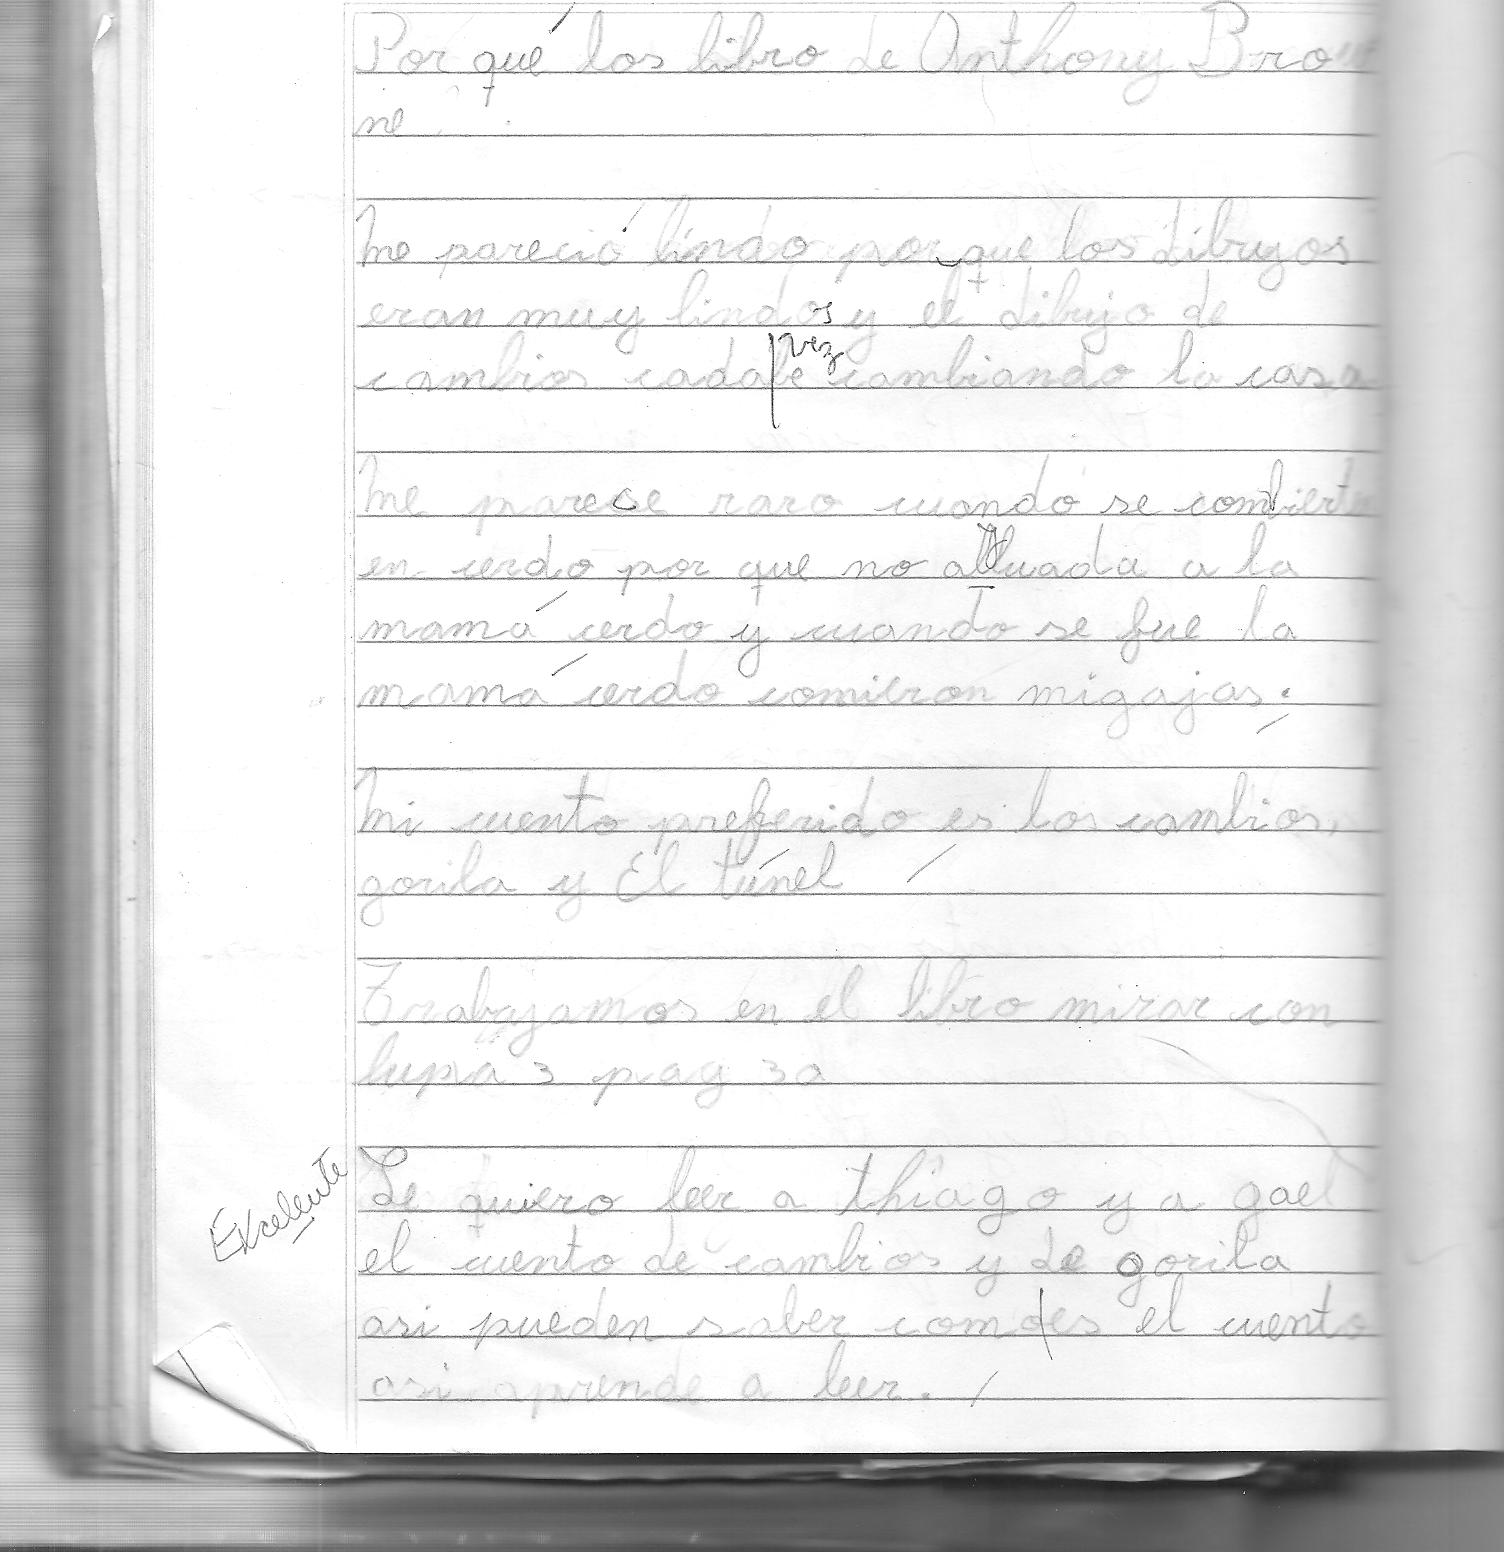 Por qué los libro de Anthony Brow
ne
Me pareció lindo porque los dibujos
eran muy lindos y el dibujo de
cambios cada vez cambiando la casa
Me parece raro cuando se combierten
en cerdo por que no alluada a la
mamá cerdo y cuando se fue la
mamá cerdo comieron migajas.
Mi cuento preferido es los cambios,
gorila y El túnel
Trabajamos en el libro mirar con
lupa 3 pag 30
Excelente
Le quiero leer a thiago y a gael
el cuento de cambios y de gorila
asi pueden saber como es el cuento
asi aprende a leer.